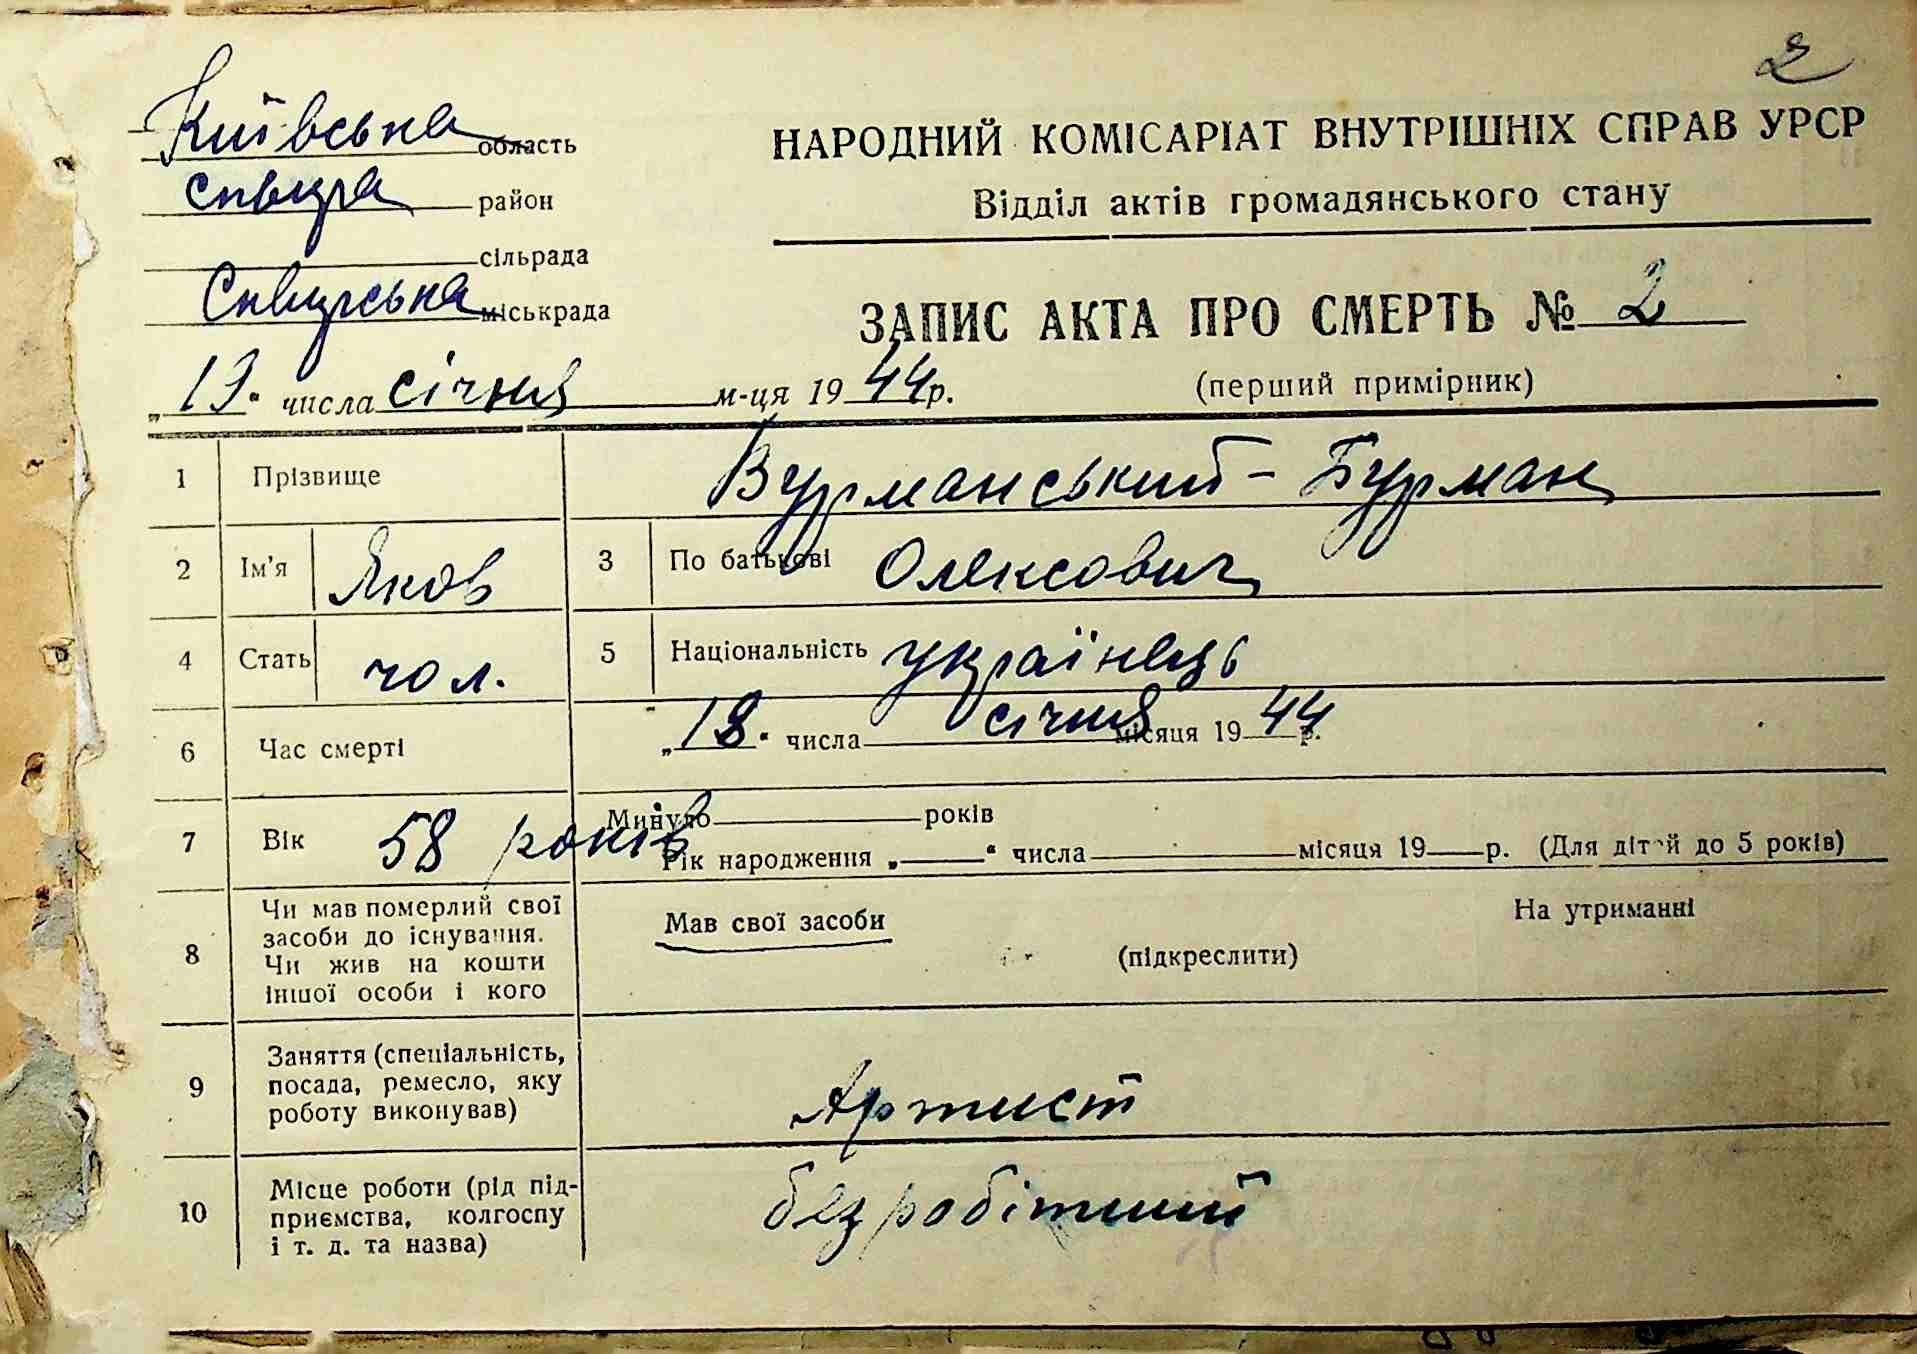 2
Київська область
Сквира район
сільрада
Сквирська міськрада
НАРОДНИЙ КОМІСАРІАТ ВНУТРІШНІХ СПРАВ УРСР
Відділ актів громадянського стану
ЗАПИС АКТА ПРО СМЕРТЬ № 2
(перший примірник)
„19“ числа січня м-ця 1944р.
1 Прізвище Вурманський-Бурман
2 Ім'я Яков 3 По батькові Олексович
4 Стать чол. 5 Національність українець
6 Час смерті „18“ числа січня місяця 1944 р.
7 Вік 58 років Минуло років
Рік народження „ “ числа місяця 19 р. (Для дітей до 5 років)
8 Чи мав померлий свої
засоби до існування.
Чи жив на кошти
іншої особи і кого
Мав свої засоби На утриманні
(підкреслити)
9 Заняття (спеціальність,
посада, ремесло, яку
роботу виконував)
Артист
10 Місце роботи (рід під-
приємства, колгоспу
і т. д. та назва)
безробітний